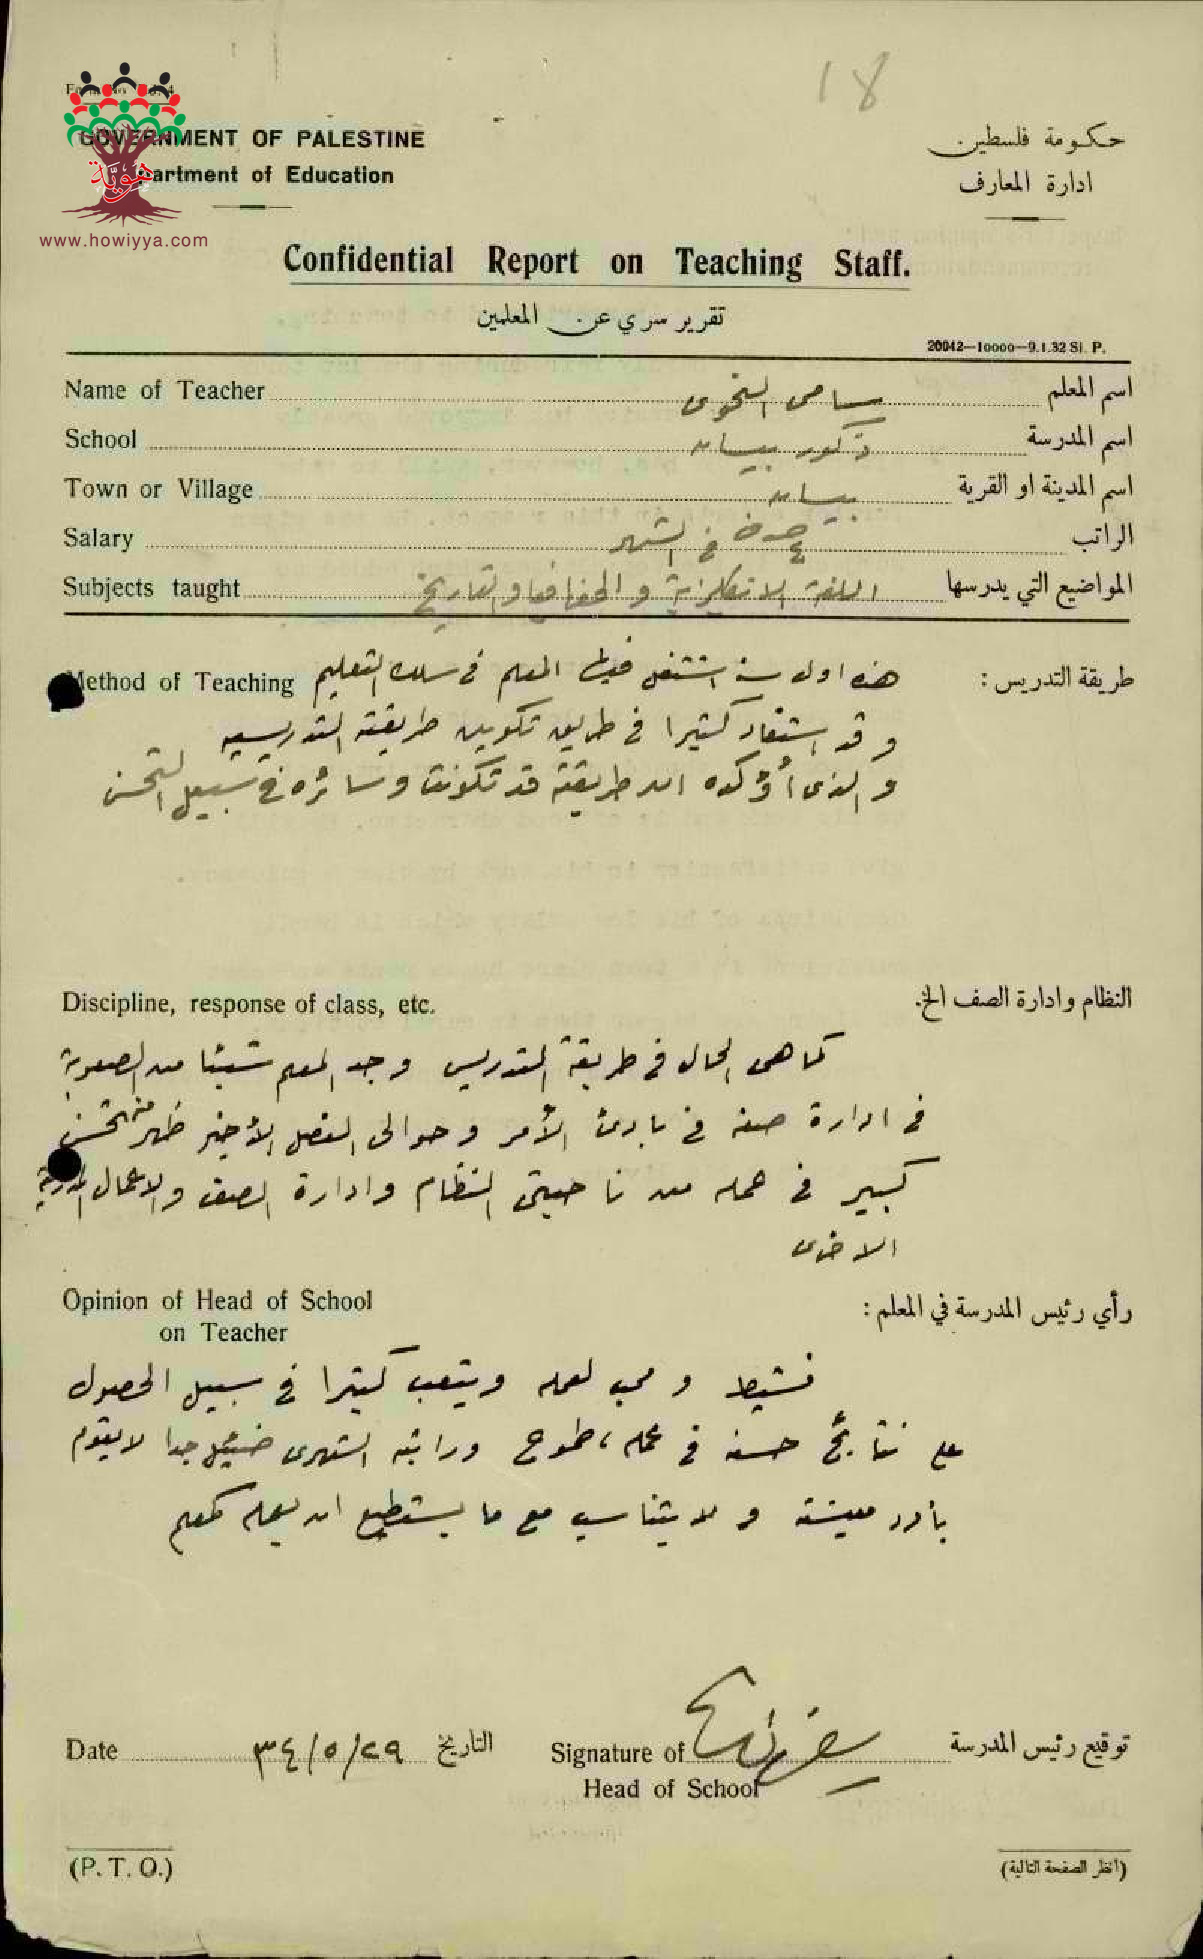 18
GOVERNMENT OF PALESTINE
حكومة فلسطين
Department of Education
ادارة المعارف
هوية
www.howiyya.com
Confidential Report on Teaching Staff.
تقرير سري عن المعلمين
20042—10000—9.1.32 Sl. P.
Name of Teacher سامي النحوي اسم المعلم
School ذكور بيسان اسم المدرسة
Town or Village بيسان اسم المدينة او القرية
Salary في الشهر الراتب
Subjects taught اللغة الانكليزية و الجغرافيا والتاريخ المواضيع التي يدرسها
Method of Teaching طريقة التدريس :
هذه اول سنة اشتغل فيها المعلم في سلك التعليم
وقد استفاد كثيرا في طريق تكوين طريقته التدريسية
والذي أؤكده ان طريقته قد تكونت وسائره في سبيل التحسن
Discipline, response of class, etc. النظام وادارة الصف الخ.
كما هي الحال في طريقة التدريس وجد المعلم شيئا من الصعوبة
في ادارة صفه في بادئ الأمر وحوالى الفصل الأخير ظهر منه تحسن
كبير في عمله من ناحيتي النظام وادارة الصف والاعمال المدرسية
الاخرى
Opinion of Head of School
on Teacher
رأي رئيس المدرسة في المعلم :
نشيط ومحب لعمله ويتعب كثيرا في سبيل الحصول
على نتائج حسنة في عمله، طموح وراتبه الشهري ضئيل جدا لا يقوم
بأود معيشته ولا يتناسب مع ما يستطيع ان يعمله كمعلم
Date ٣٤/٥/٢٩ التاريخ
Signature of
Head of School
توقيع رئيس المدرسة
(P. T. O.)
(انظر الصفحة التالية)